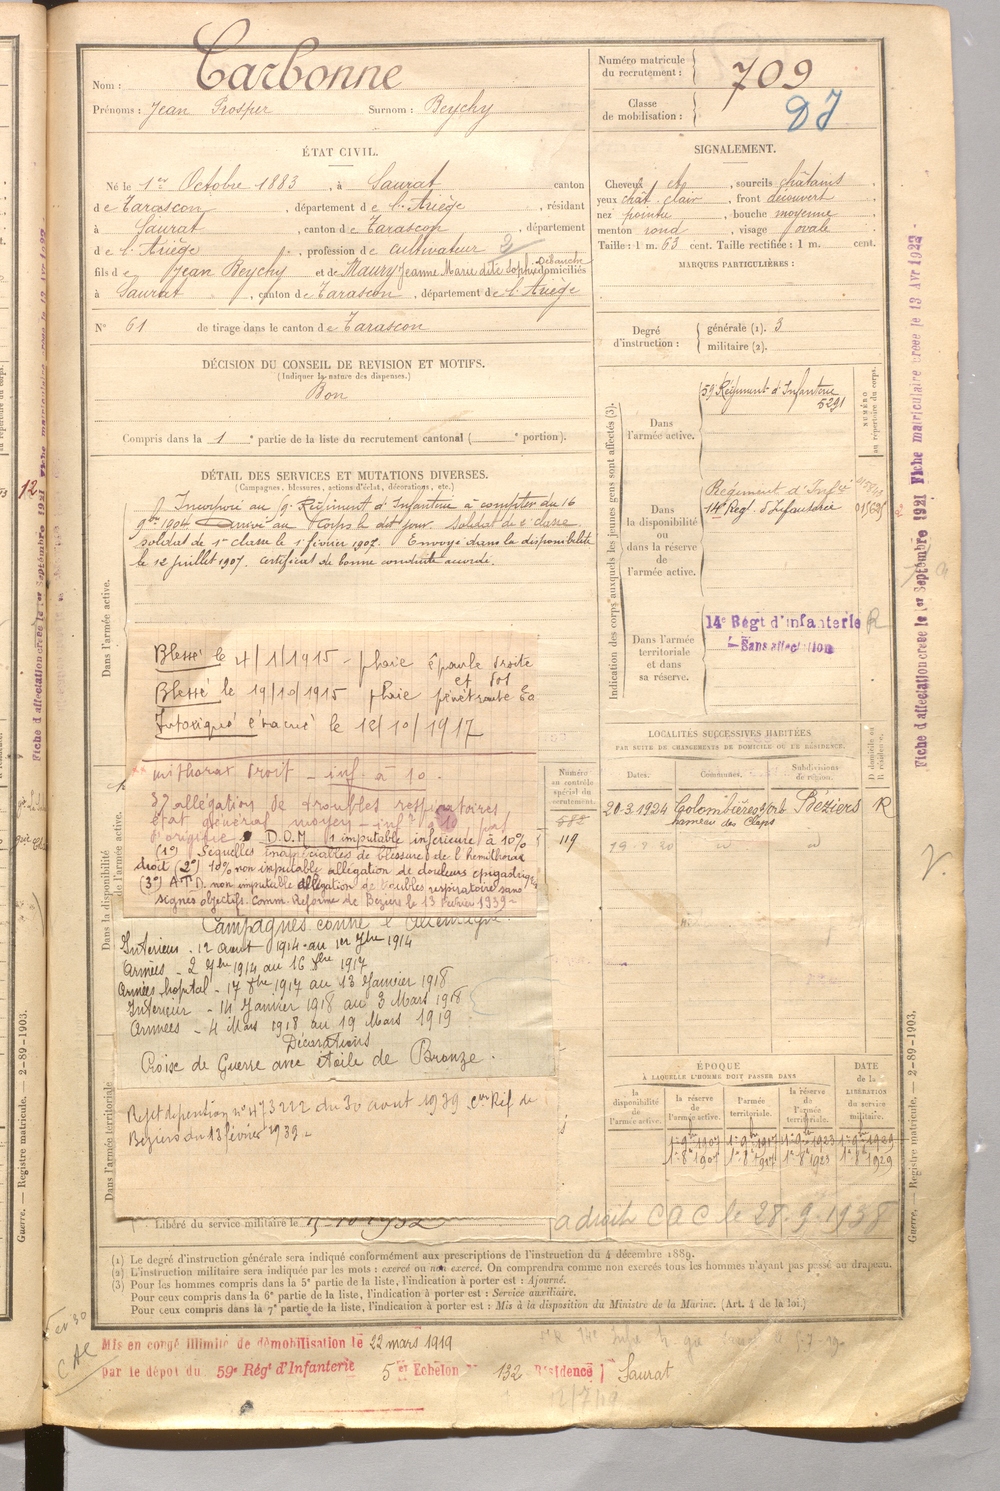 Nom : Carbonne
Prénoms : Jean Prosper Surnom : Beychy
Numéro matricule du recrutement : 709
Classe de mobilisation :
ÉTAT CIVIL.
Né le 1er Octobre 1883, à Saurat canton
de Tarascon, département de l'Ariège, résidant
à Saurat, canton de Tarascon, département
de l'Ariège, profession de cultivateur
fils de Jean Beychy et de Maury Jeanne Marie dite Sophie domiciliés
à Saurat, canton de Tarascon, département de l'Ariège
N° 61 de tirage dans le canton de Tarascon
SIGNALEMENT.
Cheveux ch, sourcils châtains,
yeux chât. clair, front découvert
nez pointu, bouche moyenne
menton rond, visage ovale
Taille : 1 m. 63 cent. Taille rectifiée : 1 m. cent.
MARQUES PARTICULIÈRES :
Degré d'instruction : générale (1). 3
militaire (2).
DÉCISION DU CONSEIL DE REVISION ET MOTIFS.
(Indiquer la nature des dispenses.)
Bon
Compris dans la 1e partie de la liste du recrutement cantonal ( e portion).
DÉTAIL DES SERVICES ET MUTATIONS DIVERSES.
(Campagnes, blessures, actions d'éclat, décorations, etc.)
Dans l'armée active.
Incorporé au 59e Régiment d'Infanterie à compter du 16
9bre 1904. Arrivé au Corps le dit jour. Soldat de 2e classe
soldat de 1e classe le 1er février 1907. Envoyé dans la disponibilité
le 12 juillet 1907. Certificat de bonne conduite accordé.
Blessé le 4/1/1915 - plaie épaule droite
et dos
Blessé le 19/10/1915 plaie pénétrante
Intoxiqué évacué le 12/10/1917
mithorax droit - inf à 10.
3°/ allégation de troubles respiratoires
état général moyen
d'origine D.O.M (1 imputable inférieure à 10%
(1°) Séquelles inappréciables de blessure de l'hemithorax
droit (2°) 10% non imputable allégation de douleurs épigastriques
(3°) A.T.D. non imputable allégation de troubles respiratoires sans
signes objectifs. Comm. Réforme de Béziers le 13 février 1939
Dans la disponibilité
de l'armée active.
Campagnes contre l'Allemagne.
Intérieur - 12 Aout 1914 au 1er 7bre 1914
Armées - 2 7bre 1914 au 16 8bre 1917
Armées hopital - 17 8bre 1917 au 13 Janvier 1918
Intérieur - 14 Janvier 1918 au 3 Mars 1918
Armées - 4 Mars 1918 au 19 Mars 1919
Décorations
Croix de Guerre avec étoile de Bronze.
Dans l'armée territoriale
Rejet de pension n° 473222 du 30 aout 1939 Con Réf de
Béziers du 13 février 1939
Libéré du service militaire le
Indication des corps auxquels les jeunes gens sont affectés (3).
NUMÉRO au répertoire du corps.
Dans l'armée active.
59e Régiment d'Infanterie
5291
Dans la disponibilité ou dans la réserve de l'armée active.
Régiment d'Infie
14e Rég. d'Infanterie
Dans l'armée territoriale et dans sa réserve.
14e Régt d'infanterie R
Sans affectation
LOCALITÉS SUCCESSIVES HABITÉES
PAR SUITE DE CHANGEMENTS DE DOMICILE OU DE RÉSIDENCE.
Numéro au contrôle spécial du recrutement. Dates. Communes. Subdivisions de région. D domicile ou R résidence.
588 20-3-1924 Colombières s/Orb Béziers R
hameau des Claps
119
ÉPOQUE
À LAQUELLE L'HOMME DOIT PASSER DANS
DATE de la LIBÉRATION du service militaire.
la disponibilité de l'armée active. la réserve de l'armée active. l'armée territoriale. la réserve de l'armée territoriale.
1er 9bre 1907 1er 9bre 1917 1er 9bre 1923 1er 9bre 1929
1er 8bre 1907 1er 8bre 1917 1er 8bre 1923 1er 8bre 1929
a droit C A C le 28.9.1938
(1) Le degré d'instruction générale sera indiqué conformément aux prescriptions de l'instruction du 4 décembre 1889.
(2) L'instruction militaire sera indiquée par les mots : exercé ou non exercé. On comprendra comme non exercés tous les hommes n'ayant pas passé au drapeau.
(3) Pour les hommes compris dans la 5e partie de la liste, l'indication à porter est : Ajourné.
Pour ceux compris dans la 6e partie de la liste, l'indication à porter est : Service auxiliaire.
Pour ceux compris dans la 7e partie de la liste, l'indication à porter est : Mis à la disposition du Ministre de la Marine. (Art. 4 de la loi.)
Mis en congé illimité de démobilisation le 22 mars 1919
par le dépôt du 59e Régt d'Infanterie 5e Echelon N° 132 Résidence Saurat
CAC
Guerre. — Registre matricule. — 2-89-1903.
Guerre. — Registre matricule. — 2-89-1903.
Fiche d'affectation créée le 1er Septembre 1921 Fiche matriculaire créée le 13 Avr 1922